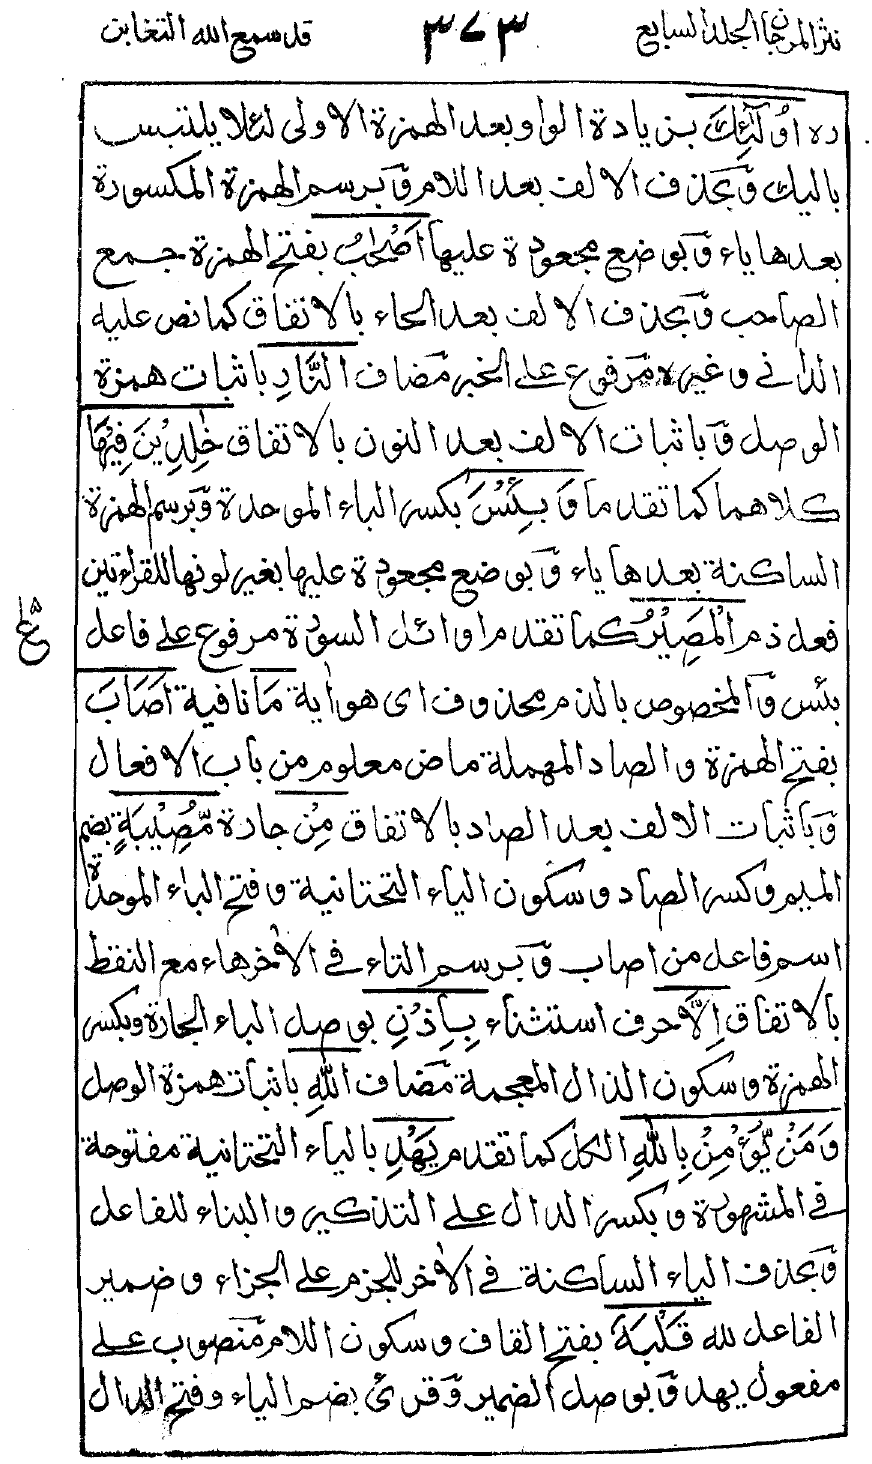 نثر المرجان الجلد السابع
٣٧٣
قد سمع الله التغابن
ده اُولٰٓئِكَ بزيادة الواو بعد الهمزة الاولى لئلا يلتبس
باليك وَبحذف الالف بعد اللام وَبرسم الهمزة المكسورة
بعدها ياء وَبوضع مجعودة عليها اَصْحٰبُ بفتح الهمزة جمع
الصاحب وَبحذف الالف بعد الحاء بالاتفاق كما نص عليه
الداني وغيره مَرفوع على الخبر مَضاف النَّارِ باثبات همزة
الوصل وَباثبات الالف بعد النون بالاتفاق خٰلِدِيْنَ فِيْهَا
كلاهما كما تقدما وَبِئْسَ بكسر الباء الموحدة وَبرسم الهمزة
الساكنة بعدها ياء وَبوضع مجعودة عليها بغير لونها للقراءتين
فعل ذم الْمَصِيْرُ كما تقدم اوائل السورة مرفوع على فاعل
بئس وَالمخصوص بالذم محذوف اى هو اٰية مَا نافية اَصَابَ
بفتح الهمزة والصاد المهملة ماض معلوم من باب الافعال
وَباثبات الالف بعد الصاد بالاتفاق مِنْ جارة مُّصِيْبَةٍ بضم
الميم وكسر الصاد وسكون الياء التحتانية وفتح الباء الموحدة
اسم فاعل من اصاب وَبرسم التاء في الاٰخر هاء مع النقط
بالاتفاق اِلَّا حرف استثناء بِاِذْنِ بوصل الباء الجارة وبكسر
الهمزة وسكون الذال المعجمة مَضاف اللهِ باثبات همزة الوصل
وَمَنْ يُّؤْمِنْ بِاللهِ الكل كما تقدم يَهْدِ بالياء التحتانية مفتوحة
في المشهورة وَبكسر الدال على التذكير والبناء للفاعل
وَبحذف الياء الساكنة في الاٰخر للجزم على الجزاء وضمير
الفاعل لله قَلْبَهٗ بفتح القاف وسكون اللام مَنصوب على
مفعول يهد وَبوصل الضمير وَقرئ بضم الياء وفتح الدال